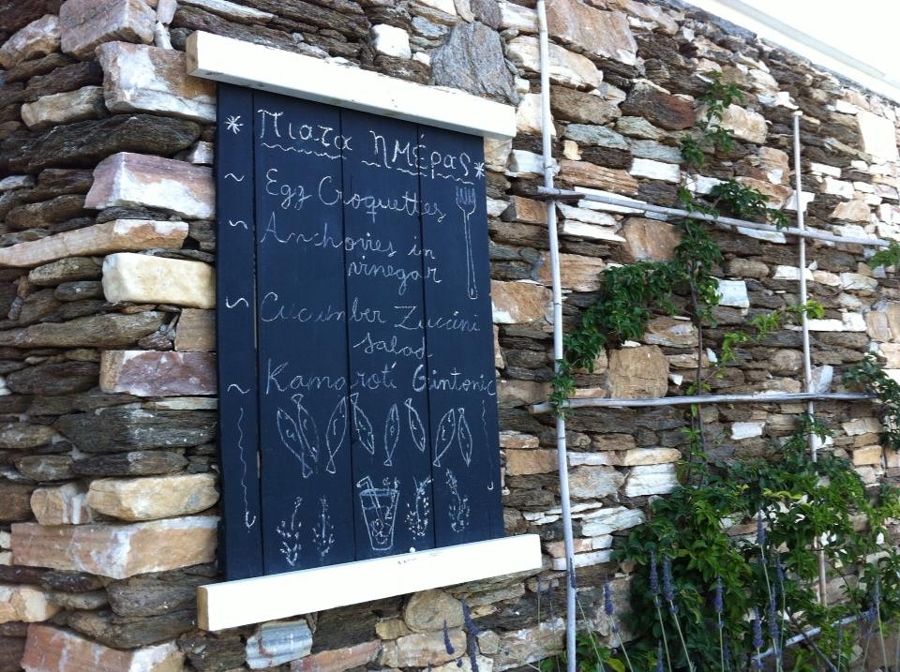 Πιατα ημέρας
Egg Croquettes
Anchovies in
vinegar
Cucumber Zuccini
salad
Kamaroti Gintonic